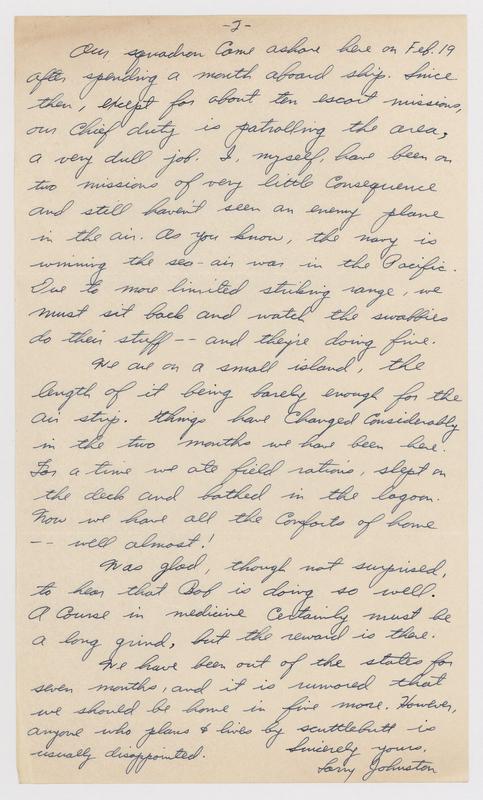 -2-
Our squadron came ashore here on Feb. 19
after spending a month aboard ship. Since
then, except for about ten escort missions,
our chief duty is patrolling the area,
a very dull job. I, myself, have been on
two missions of very little consequence
and still haven't seen an enemy plane
in the air. As you know, the navy is
winning the sea-air war in the Pacific.
Due to more limited striking range, we
must sit back and watch the swabbies
do their stuff -- and they're doing fine.
We are on a small island, the
length of it being barely enough for the
air strip. Things have changed considerably
in the two months we have been here.
For a time we ate field rations, slept on
the deck and bathed in the lagoon.
Now we have all the comforts of home
-- well almost!
Was glad, though not surprised,
to hear that Bob is doing so well.
A course in medicine certainly must be
a long grind, but the reward is there.
We have been out of the states for
seven months, and it is rumored that
we should be home in five more. However,
anyone who plans & lives by scuttlebutt is
usually disappointed. Sincerely yours,
Larry Johnston